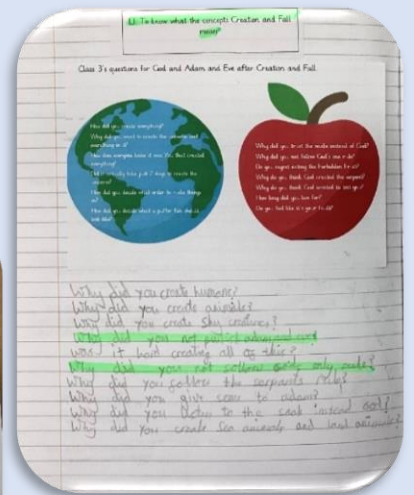 LI: To know what the concepts Creation and Fall mean?
Class 3's questions for God and Adam and Eve after Creation and Fall.
How did you create everything?
Why did you want to create the universe and everything in it?
How does everyone know it was You that created everything?
Did it actually take you 7 days to create the universe?
How did you decide what order to make things in?
How did you decide what a
Why did you trust the snake instead of God?
Why did you not follow God's one rule?
Do you regret eating the forbidden fruit?
Why do you think God created the serpent?
Why do you think God wanted to
How long did you live for?
Do you feel like it's your fault?
Why did you create humans?
Why did you create animals?
Why did you create sky creatures?
Why did you not protect adam and
was it hard creating all of this?
Why did you not follow gods only rule?
Why did you follow the serpants rule?
Why did you give some to adam?
Why did you listen to the instead
Why did you create sea animals and land animals?